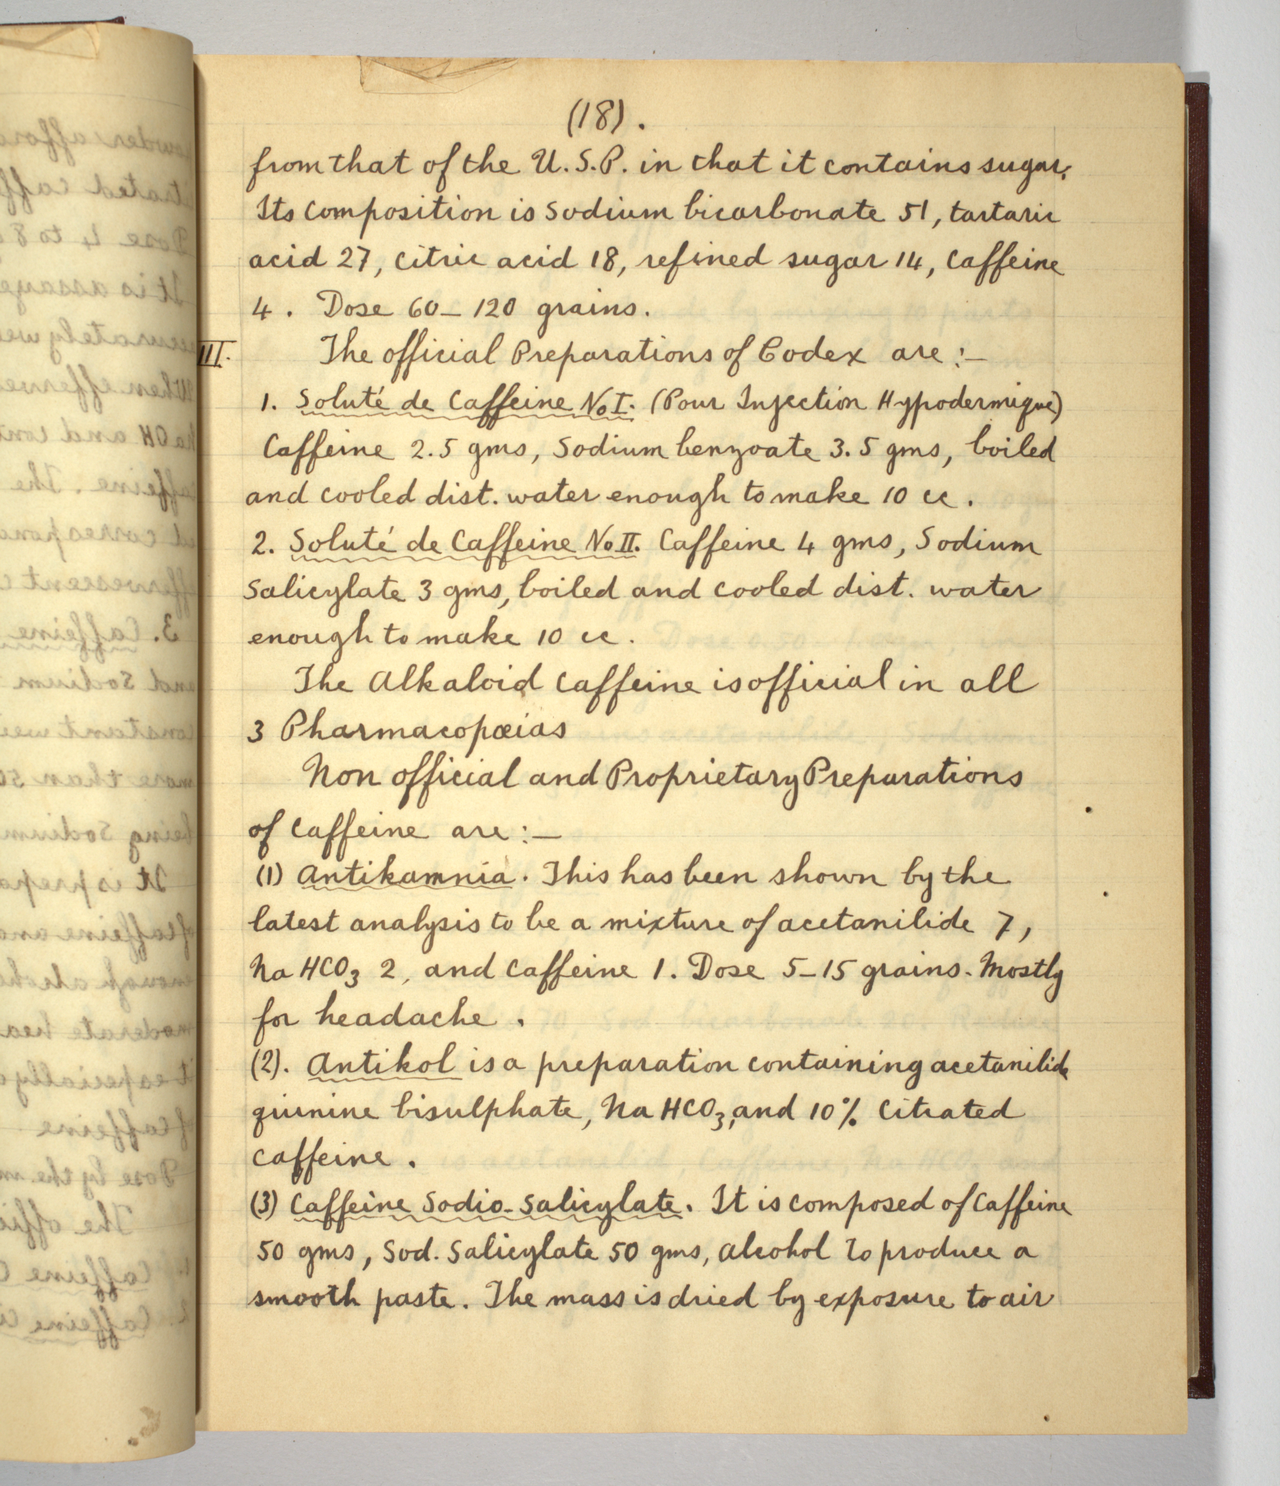 (18).
from that of the U.S.P. in that it contains sugar.
Its composition is Sodium bicarbonate 51, tartaric
acid 27, citric acid 18, refined sugar 14, caffeine
4. Dose 60–120 grains.
III. The official Preparations of Codex are:—
1. Soluté de Caffeine No I. (Pour Injection Hypodermique)
Caffeine 2.5 gms, Sodium benzoate 3.5 gms, boiled
and cooled dist. water enough to make 10 cc.
2. Soluté de Caffeine No II. Caffeine 4 gms, Sodium
Salicylate 3 gms, boiled and cooled dist. water
enough to make 10 cc.
The Alkaloid caffeine is official in all
3 Pharmacopœias
Non official and Proprietary Preparations
of caffeine are:—
(1) Antikamnia. This has been shown by the
latest analysis to be a mixture of acetanilide 7,
NaHCO3 2, and caffeine 1. Dose 5–15 grains. Mostly
for headache.
(2). Antikol is a preparation containing acetanilide
quinine bisulphate, NaHCO3, and 10% citrated
caffeine.
(3) Caffeine Sodio-Salicylate. It is composed of Caffeine
50 gms, Sod. Salicylate 50 gms, alcohol to produce a
smooth paste. The mass is dried by exposure to air